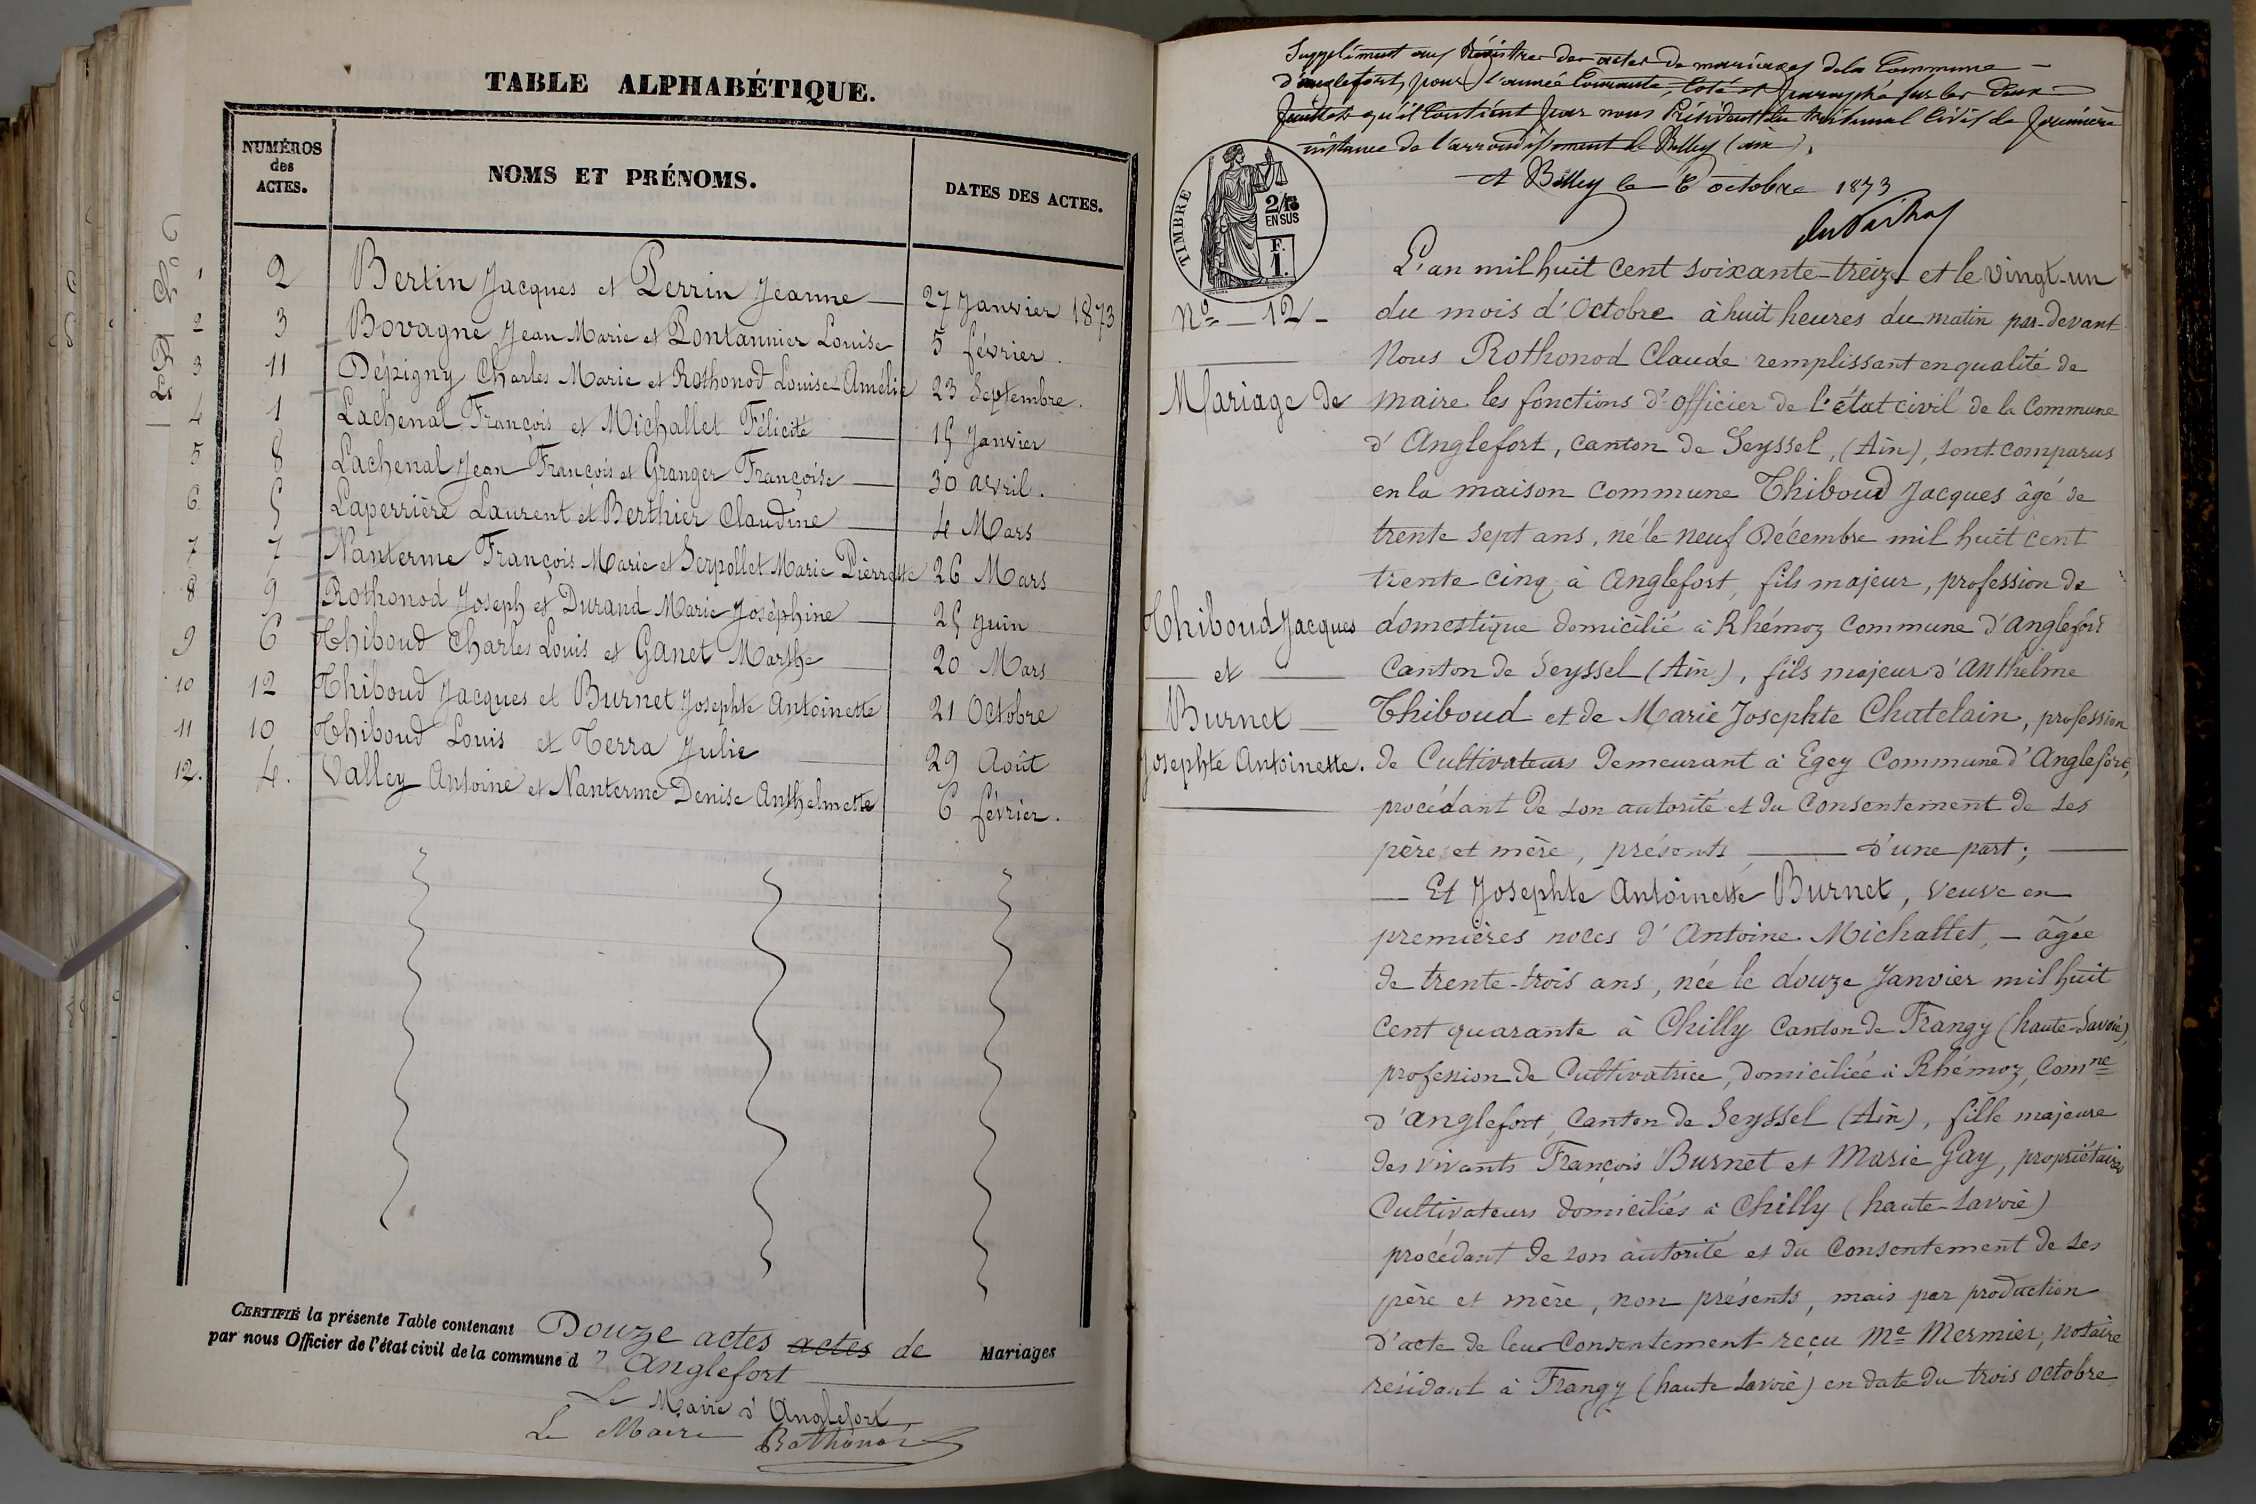 TABLE ALPHABÉTIQUE.
NUMÉROS
des
ACTES.
NOMS ET PRÉNOMS.
DATES DES ACTES.
1 2 Bertin Jacques et Perrin Jeanne 27 Janvier 1873
2 3 Bovagne Jean Marie et Pontannier Louise 5 février.
3 11 Dépigny Charles Marie et Rothonod Louise-Amélie 23 Septembre.
4 1 Lachenal François et Michallet Félicité 15 Janvier
5 8 Lachenal Jean François et Granger Françoise 30 avril.
6 5 Laperrière Laurent et Berthier Claudine 4 Mars
7 7 Nanterme François Marie et Serpollet Marie Pierrette 26 Mars
8 9 Rothonod Joseph et Durand Marie Joséphine 25 Juin
9 6 Thiboud Charles Louis et Ganet Marthe 20 Mars
10 12 Thiboud Jacques et Burnet Josephte Antoinette 21 Octobre
11 10 Thiboud Louis et Terra Julie 29 Août
12. 4. Valley Antoine et Nanterme Denise Anthelmette 6 février.
CERTIFIÉ la présente Table contenant Douze actes actes de Mariages
par nous Officier de l'état civil de la commune d'Anglefort
Le Maire d'Anglefort,
Le Maire Rothonod
Supplément aux Régistres des actes de mariages de la Commune
d'anglefort, pour l'année Courante, Coté et paraphé sur les deux
feuillets qu'il Contient par nous Président du tribunal Civil de première
instance de l'arrondissement de Belley (ain).
A Belley le 6 octobre 1873
TIMBRE
2/10
EN SUS
F.
1.
L'an mil huit cent soixante-treize et le vingt-un
No 12
du mois d'Octobre à huit heures du matin par-devant
Nous Rothonod Claude remplissant en qualité de
Mariage de
maire les fonctions d'officier de l'état civil de la Commune
d'Anglefort, canton de Seyssel, (Ain), sont comparus
en la maison commune Thiboud Jacques âgé de
trente sept ans, né le neuf Décembre mil huit cent
trente cinq à Anglefort, fils majeur, profession de
Thiboud Jacques
domestique domicilié à Rhémoz commune d'Anglefort
et
Canton de Seyssel (Ain), fils majeur d'Anthelme
Burnet
Thiboud et de Marie Josephte Chatelain, profession
Josephte Antoinette.
de Cultivateurs demeurant à Egey Commune d'Anglefort,
procédant de son autorité et du Consentement de ses
père et mère, présents d'une part;
Et Josephte Antoinette Burnet, veuve en
premières noces d'Antoine Michallet, - âgée
de trente-trois ans, née le douze Janvier mil huit
cent quarante à Chilly Canton de Frangy (haute-Savoie),
profession de Cultivatrice, domiciliée à Rhémoz, Comne
d'anglefort, Canton de Seyssel (Ain), fille majeure
des vivants François Burnet et Marie Gay, propriétaires
Cultivateurs domiciliés à Chilly (haute-Savoie)
procédant de son autorité et du Consentement de ses
père et mère, non présents, mais par production
d'acte de leur Consentement reçu Me Mermier, notaire
résidant à Frangy (haute Savoie) en date du trois octobre